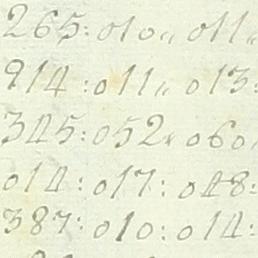 265: 010,, 011,,
914 : 011,, 013:
345: 052, 060,
014: 017: 048:
387: 010: 014: